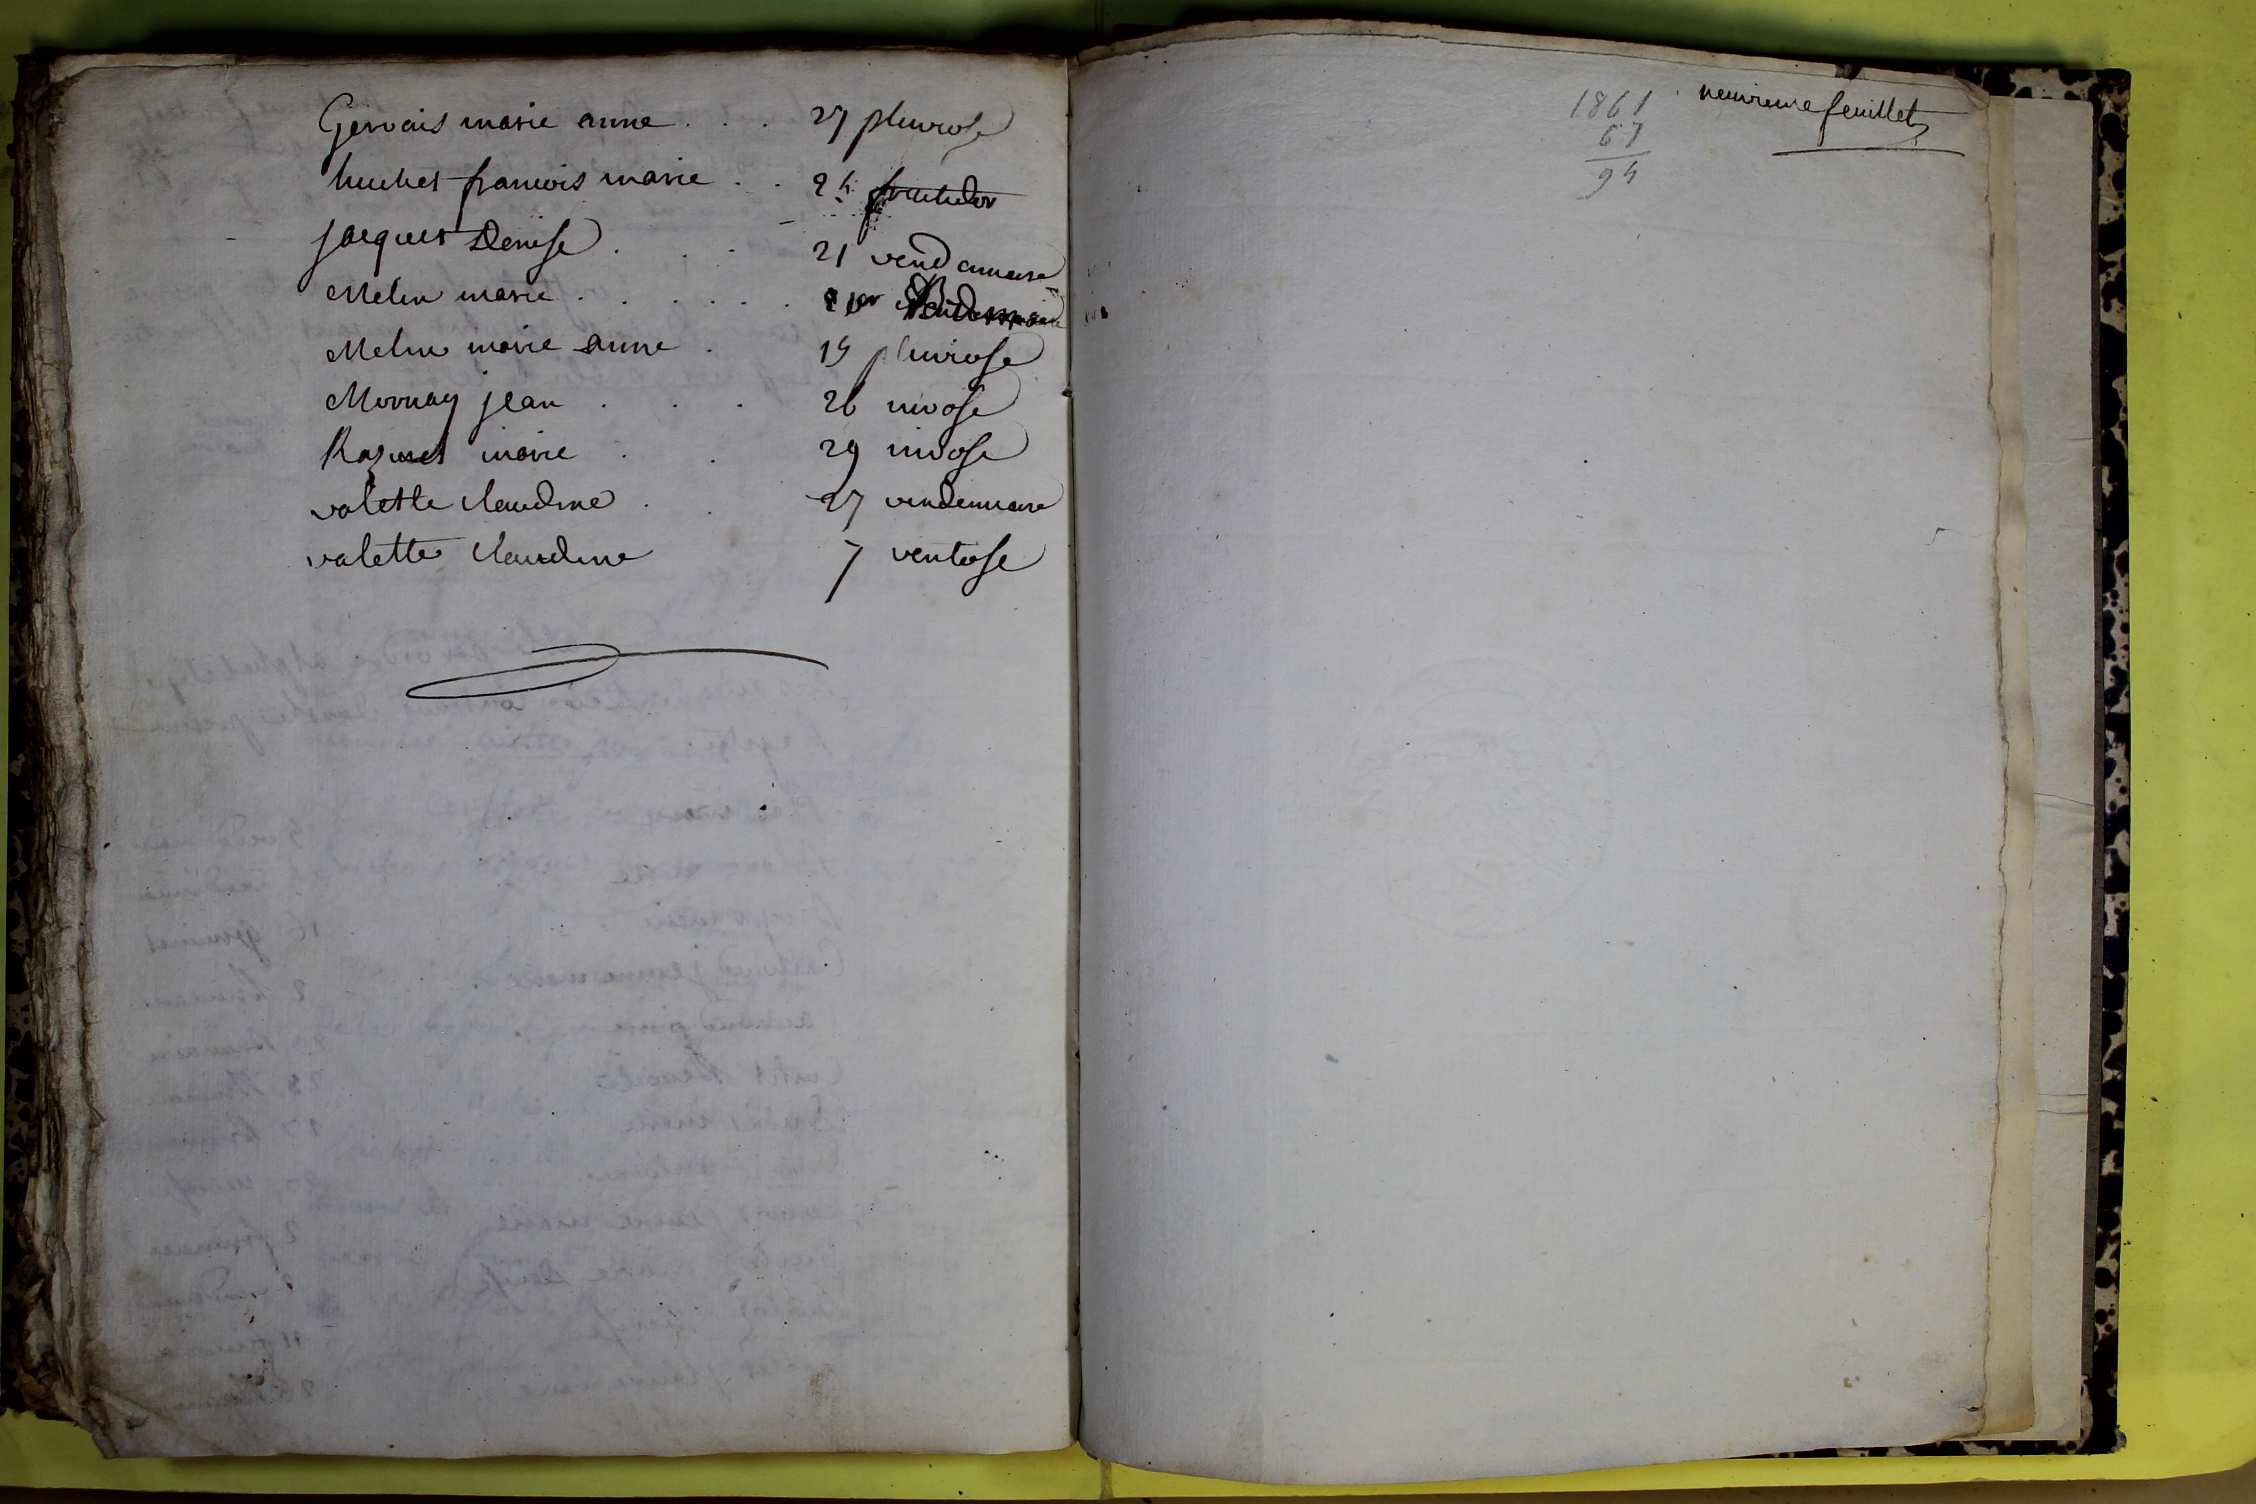 Gervais marie anne . . . 27 pluviose
huchet francois marie . . 24 fructidor
jacques Denise . . . 21 vendemiaire
Melin marie . . . . . 1er
Melin marie anne . 19 pluviose
Mornay jean . . . 26 nivose
marie . . 29 nivose
valette claudine . . 27 vendemiaire
valette claudine 7 ventose
1861
67
94
neuvieme feuillet